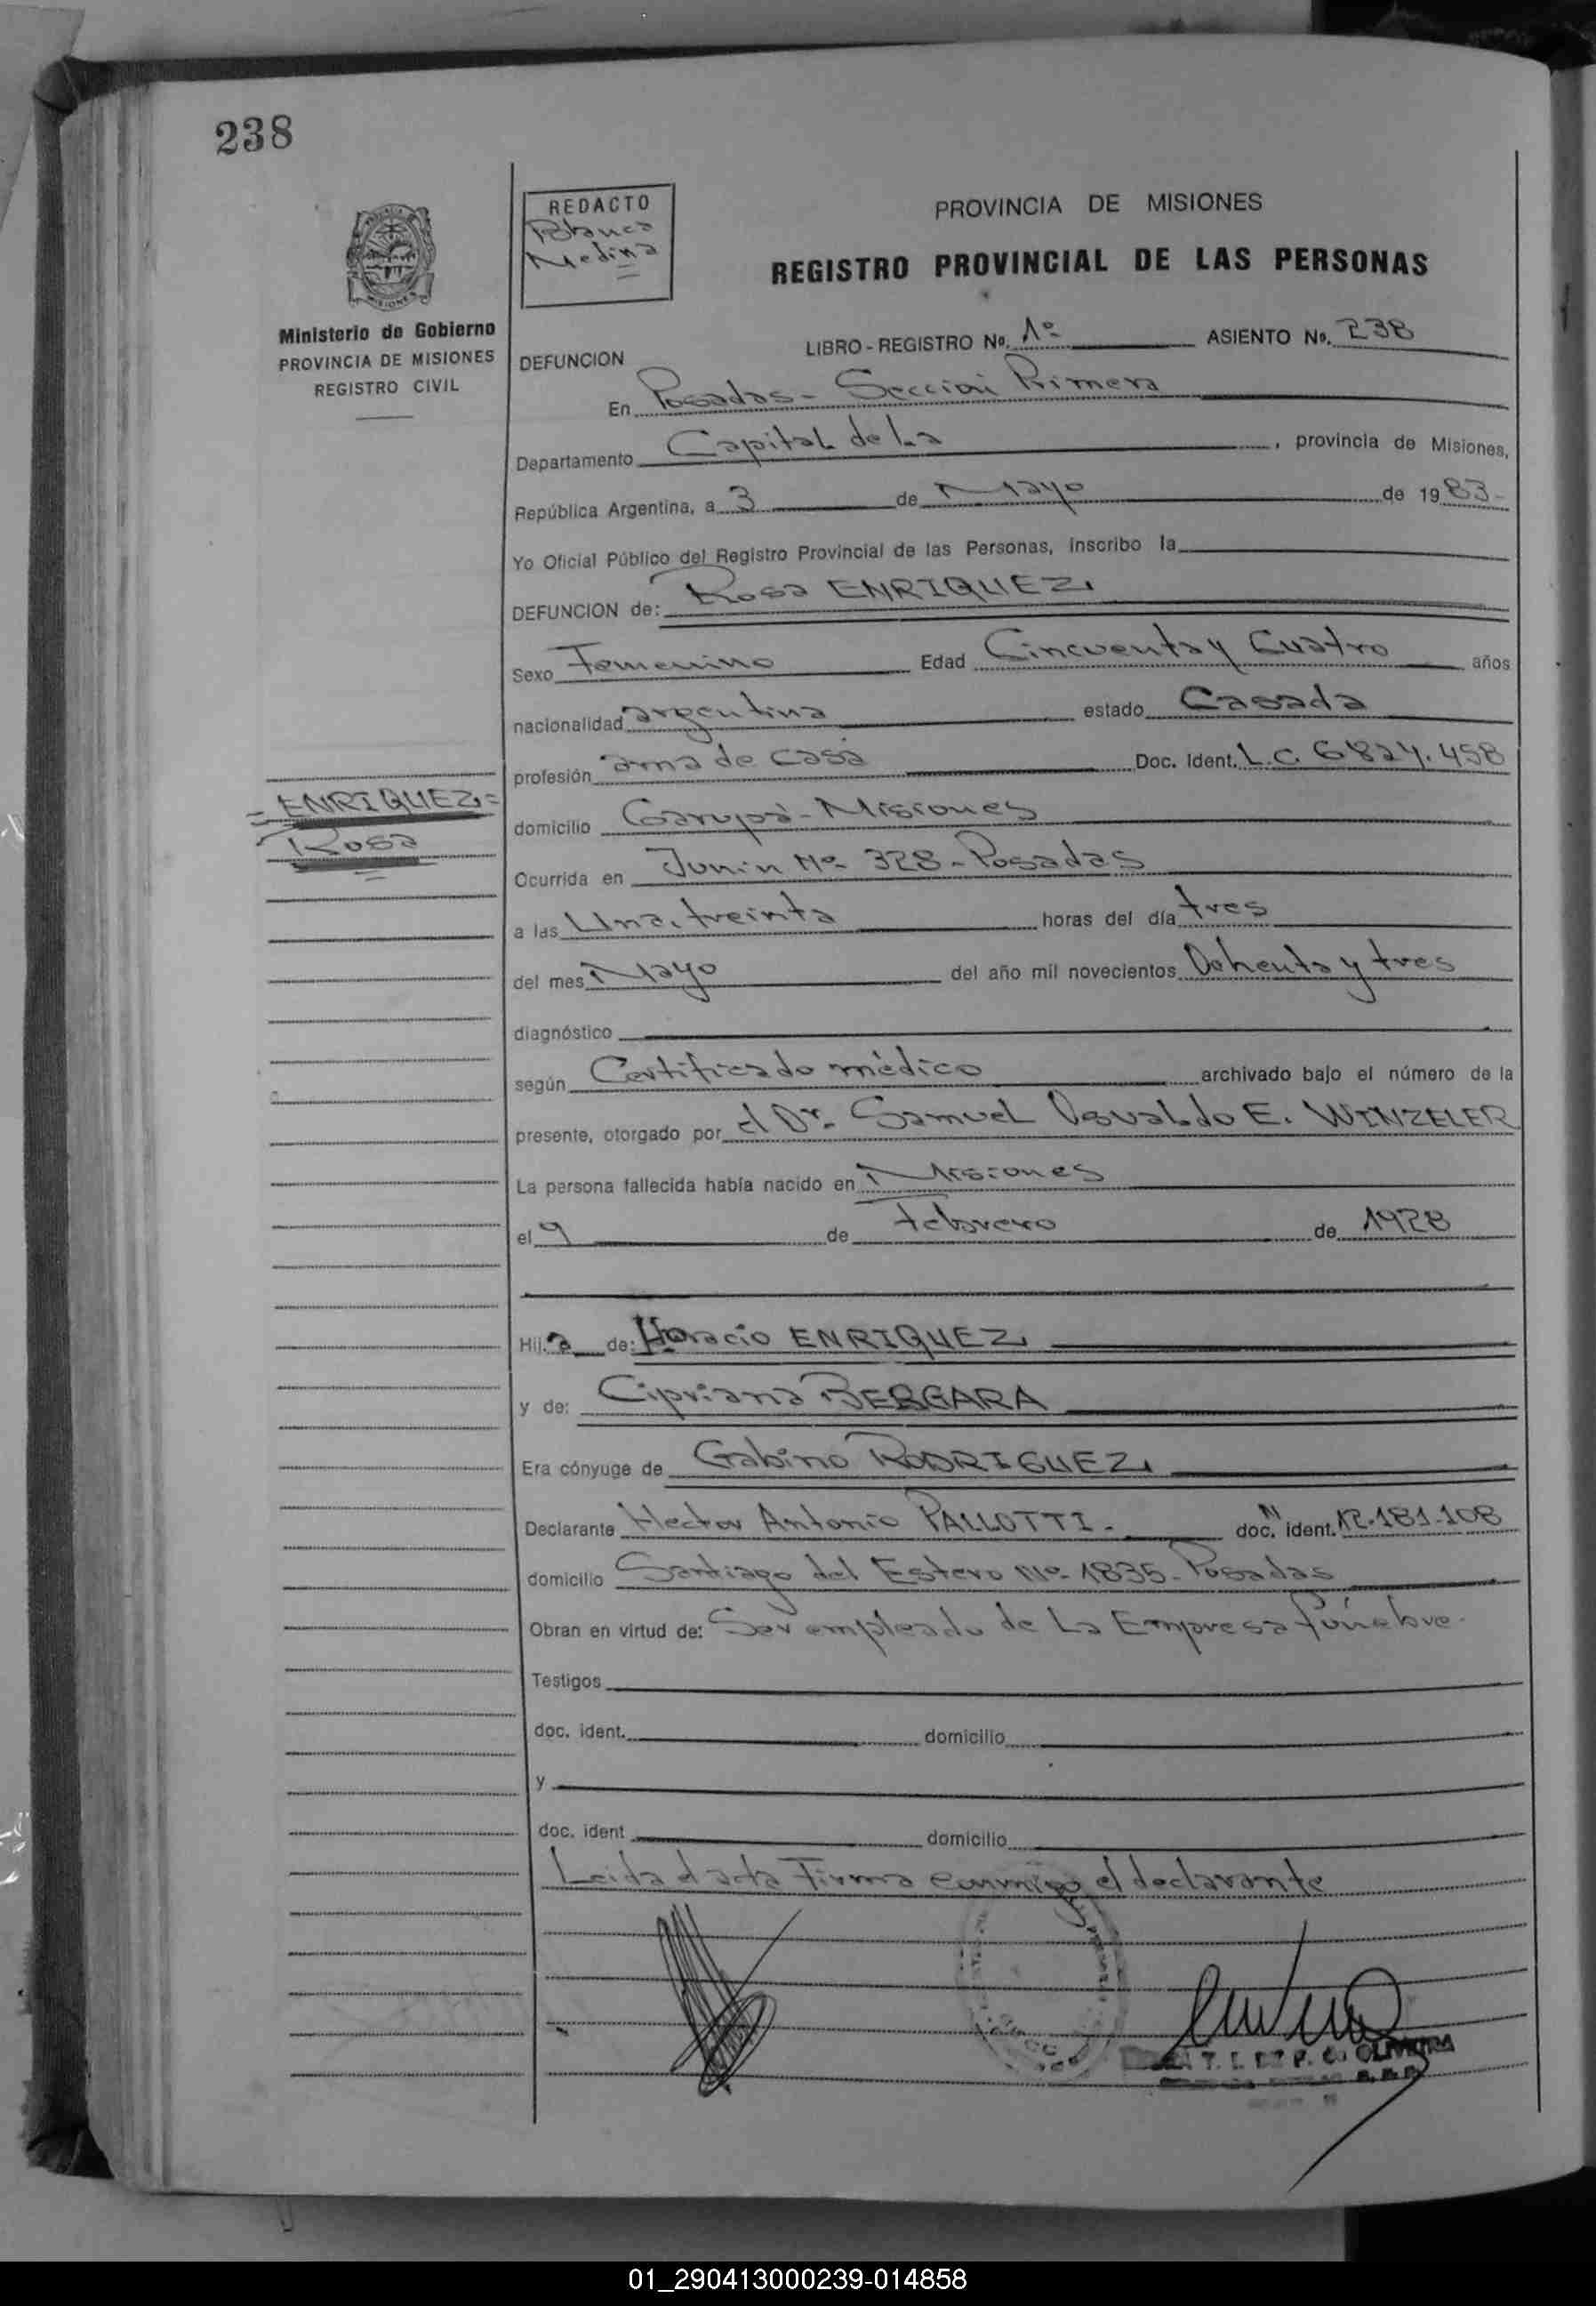 238
REDACTO
Blanca
Medina
PROVINCIA DE MISIONES
REGISTRO PROVINCIAL DE LAS PERSONAS
MISIONES
Ministerio de Gobierno
PROVINCIA DE MISIONES
REGISTRO CIVIL
LIBRO - REGISTRO No. 1º ASIENTO No. 238
DEFUNCION
En Posadas - Sección Primera
Departamento Capital de La , provincia de Misiones,
República Argentina, a 3 de Mayo de 1983-
Yo Oficial Público del Registro Provincial de las Personas, inscribo la
DEFUNCION de: Rosa ENRIQUEZ
Sexo Femenino Edad Cincuenta y Cuatro años
nacionalidad argentina estado Casada
profesión ama de casa Doc. Ident. L.C. 6824.458
= ENRIQUEZ =
Rosa
domicilio Garupá - Misiones
Ocurrida en Junin Nº 328 - Posadas
a las Una, treinta horas del día tres
del mes Mayo del año mil novecientos Ochenta y tres
diagnóstico
según Certificado médico archivado bajo el número de la
presente, otorgado por el Dr. Samuel Osvaldo E. WINZELER
La persona fallecida había nacido en Misiones
el 9 de Febrero de 1928
Hij a de: Horacio ENRIQUEZ
y de: Cipriana BERGARA
Era cónyuge de Gabino RODRIGUEZ
Declarante Hector Antonio PALLOTTI - doc. N ident. 12.181.108
domicilio Santiago del Estero Nº 1835 - Posadas
Obran en virtud de: Ser empleado de La Empresa fúnebre.
Testigos
doc. ident. domicilio
y
doc. ident domicilio
Leida el acta Firma conmigo el declarante
OLIVEIRA
01_290413000239-014858